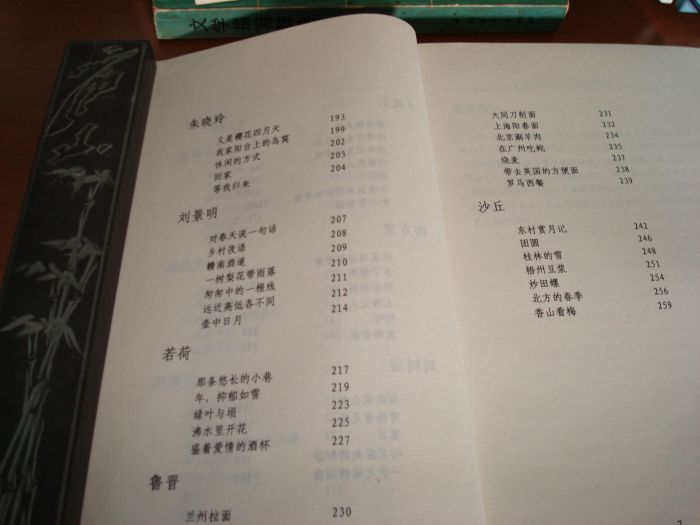 文学描写
朱晓玲
又是樱花四月天 193
我家阳台上的鸟窝 199
休闲的方式 202
回家 203
等我归来 204
刘景明
对春天说一句话 207
乡村夜语 208
赣南酒道 209
一树梨花带雨落 210
匆匆中的一根线 211
远近高低各不同 212
壶中日月 214
若荷
那条悠长的小巷 217
年，抑郁如雪 219
绿叶与埙 223
沸水里开花 225
盛着爱情的酒杯 227
鲁晋
兰州拉面 230
大同刀削面 231
上海阳春面 232
北京涮羊肉 234
在广州吃蛇 235
烧麦 237
带去英国的方便面 238
罗马西餐 239
沙丘
东村赏月记 242
团圆 246
桂林的雪 248
梧州豆浆 251
炒田螺 254
北方的春季 256
香山看梅 259